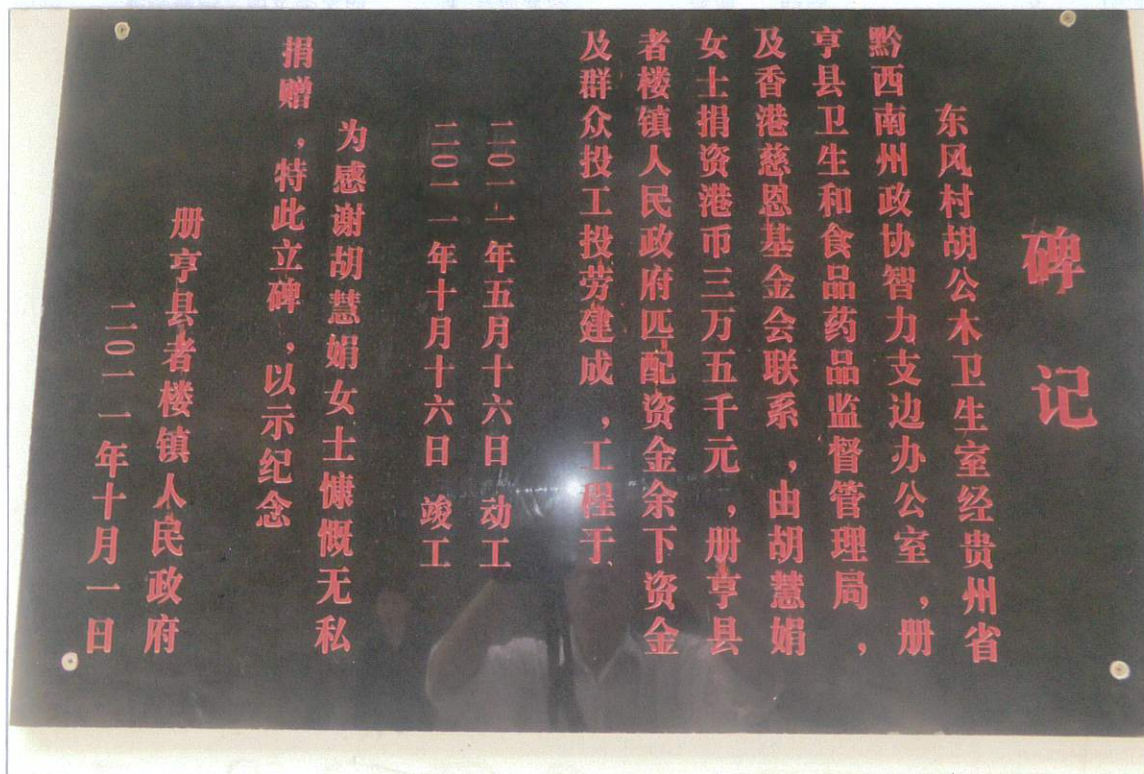 碑记
东风村胡公木卫生室经贵州省
黔西南州政协智力支边办公室，册
亨县卫生和食品药品监督管理局，
及香港慈恩基金会联系，由胡慧娟
女士捐资港币三万五千元，册亨县
者楼镇人民政府匹配资金余下资金
及群众投工投劳建成，工程于
二〇一一年五月十六日 动工
二〇一一年十月十六日 竣工
为感谢胡慧娟女士慷慨无私
捐赠，特此立碑，以示纪念
册亨县者楼镇人民政府
二〇一一年十月一日